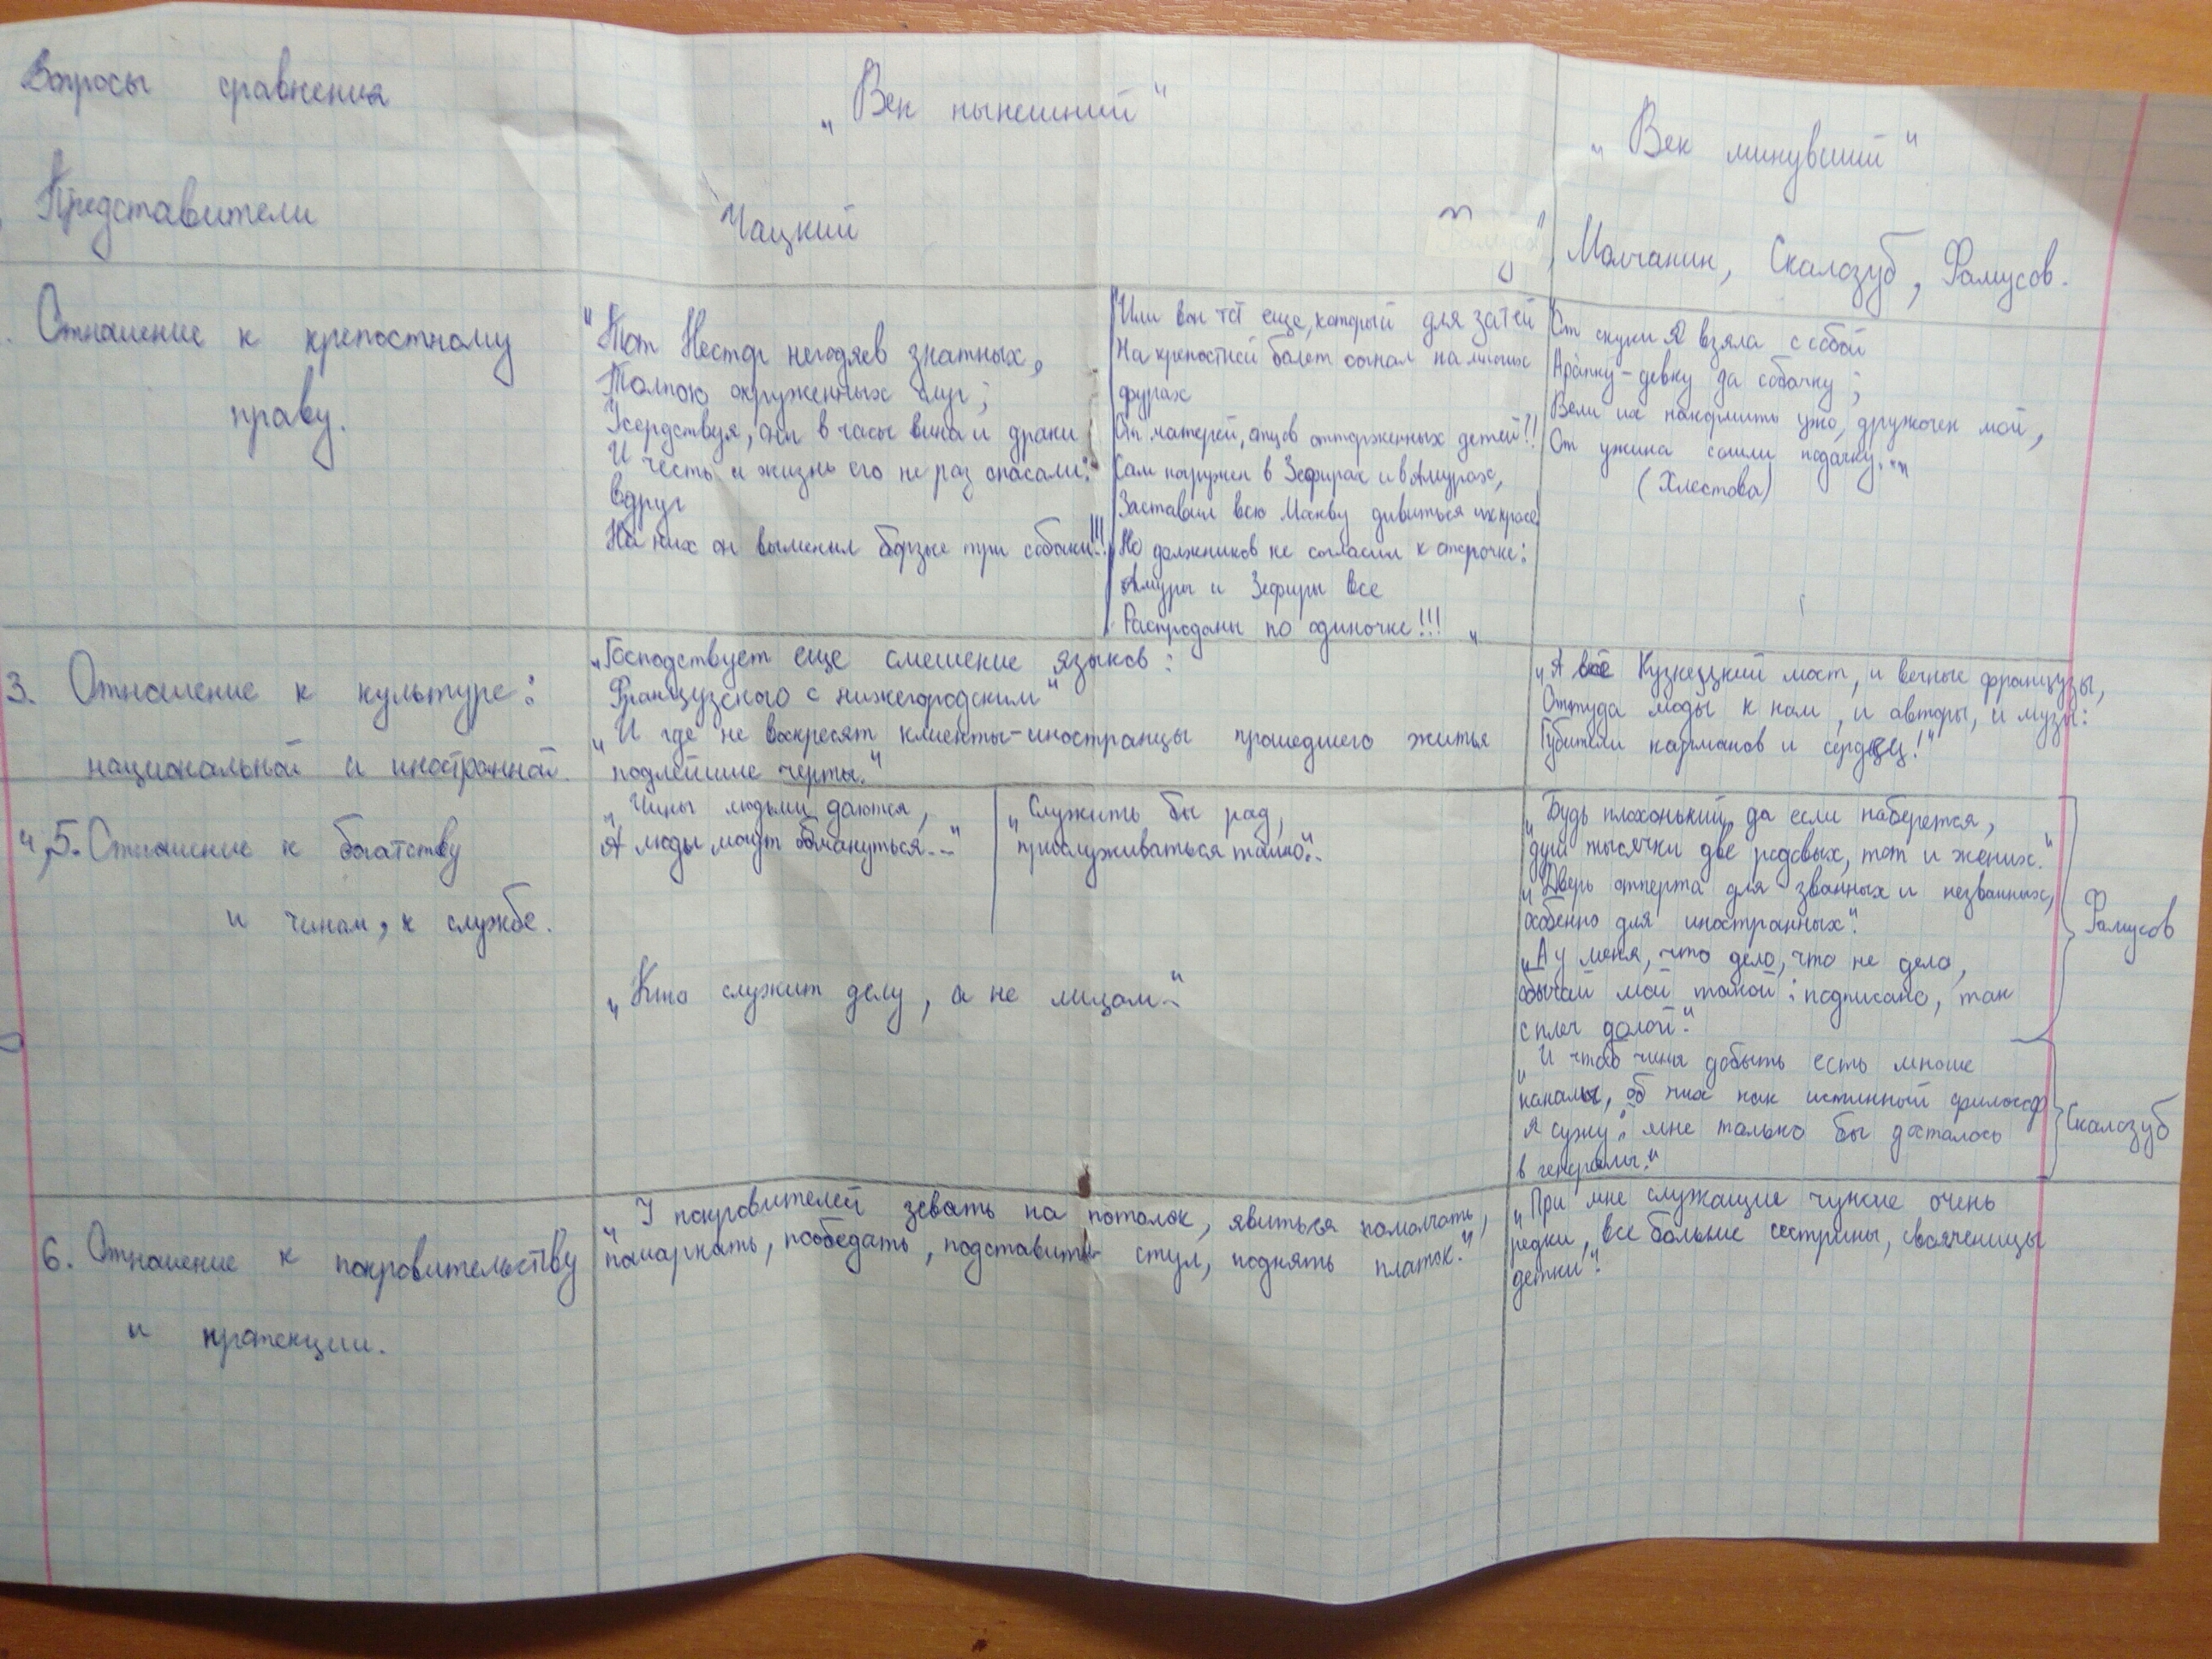 Вопросы сравнения
„Век нынешний“
„Век минувший“
Представители
Чацкий
Молчанин, Скалозуб, Фамусов.
Отношение к крепостному
праву.
"Тот Нестор негодяев знатных,
Толпою окруженных слуг;
Усердствуя, они в часы вина и драки
И честь и жизнь его не раз спасали:
вдруг
На них он выменил борзые три собаки!!!
"Или вон тот еще, который для затей
На крепостной балет согнал на многих
фурах
От матерей, отцов отторженных детей!!
Сам погружен в Зефирах и в Амурах,
Заставил всю Москву дивиться их красе!
Но должников не согласил к отсрочке:
Амуры и Зефиры все
Распроданы по одиночке!!! "
От скуки я взяла с собой
Арапку-девку да собачку;
Вели их накормить ужо, дружочек мой,
От ужина сошли подачку."
(Хлестова)
3. Отношение к культуре:
национальной и иностранной.
„Господствует еще смешение языков:
Французского с нижегородским“
„И где не воскресят клиенты-иностранцы прошедшего житья
подлейшие черты."
„А всё Кузнецкий мост, и вечные французы,
Оттуда моды к нам, и авторы, и музы:
Губители карманов и сердец!"
4,5. Отношение к богатству
и чинам, к службе.
„Чины людьми даются,
А люди могут обмануться..."
„Служить бы рад,
прислуживаться тошно..."
„Кто служит делу, а не лицам..."
„Будь плохонький, да если наберется,
душ тысячки две родовых, тот и жених."
„Дверь отперта для званных и незванных,
особенно для иностранных".
„А у меня, что дело, что не дело,
обычай мой такой: подписано, так
с плеч долой."
Фамусов
„И чтоб чина добыть есть многие
каналы, об них как истинной философ
я сужу: мне только бы досталось
в генералы."
Скалозуб
6. Отношение к покровительству
и протекции.
„У покровителей зевать на потолок, явиться помолчать,
пошаркать, пообедать, подставить стул, поднять платок."
„При мне служащие чужие очень
редки, все больше сестрины, свояченицы
детки".